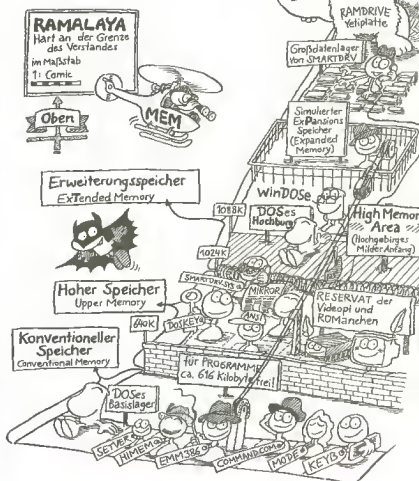 RAMALAYA
Hart an der Grenze
des Verstandes
im Maßstab
1: Comic
Oben
MEM
RAMDRIVE
Yetiplatte
Großdatenlager
von SMARTDRV
Simulierter
ExPansions
Speicher
(Expanded
Memory)
Erweiterungsspeicher
ExTended Memory
WinDOSe
1088K
DOSes
Hochburg
High Memor
Area
(Hochgebirges
Milder Anfang)
1024K
SMARTDRV.SYS
MIRROR
Hoher Speicher
Upper Memory
DOSKEY
ANSI
RESERVAT der
Videopi und
ROManchen
640K
Konventioneller
Speicher
Conventional Memory
für PROGRAMME
ca. 616 Kilobyte frei!
DOSes
Basislager
SETVER
HIMEM
EMM386
COMMAND.COM
MODE
KEYB